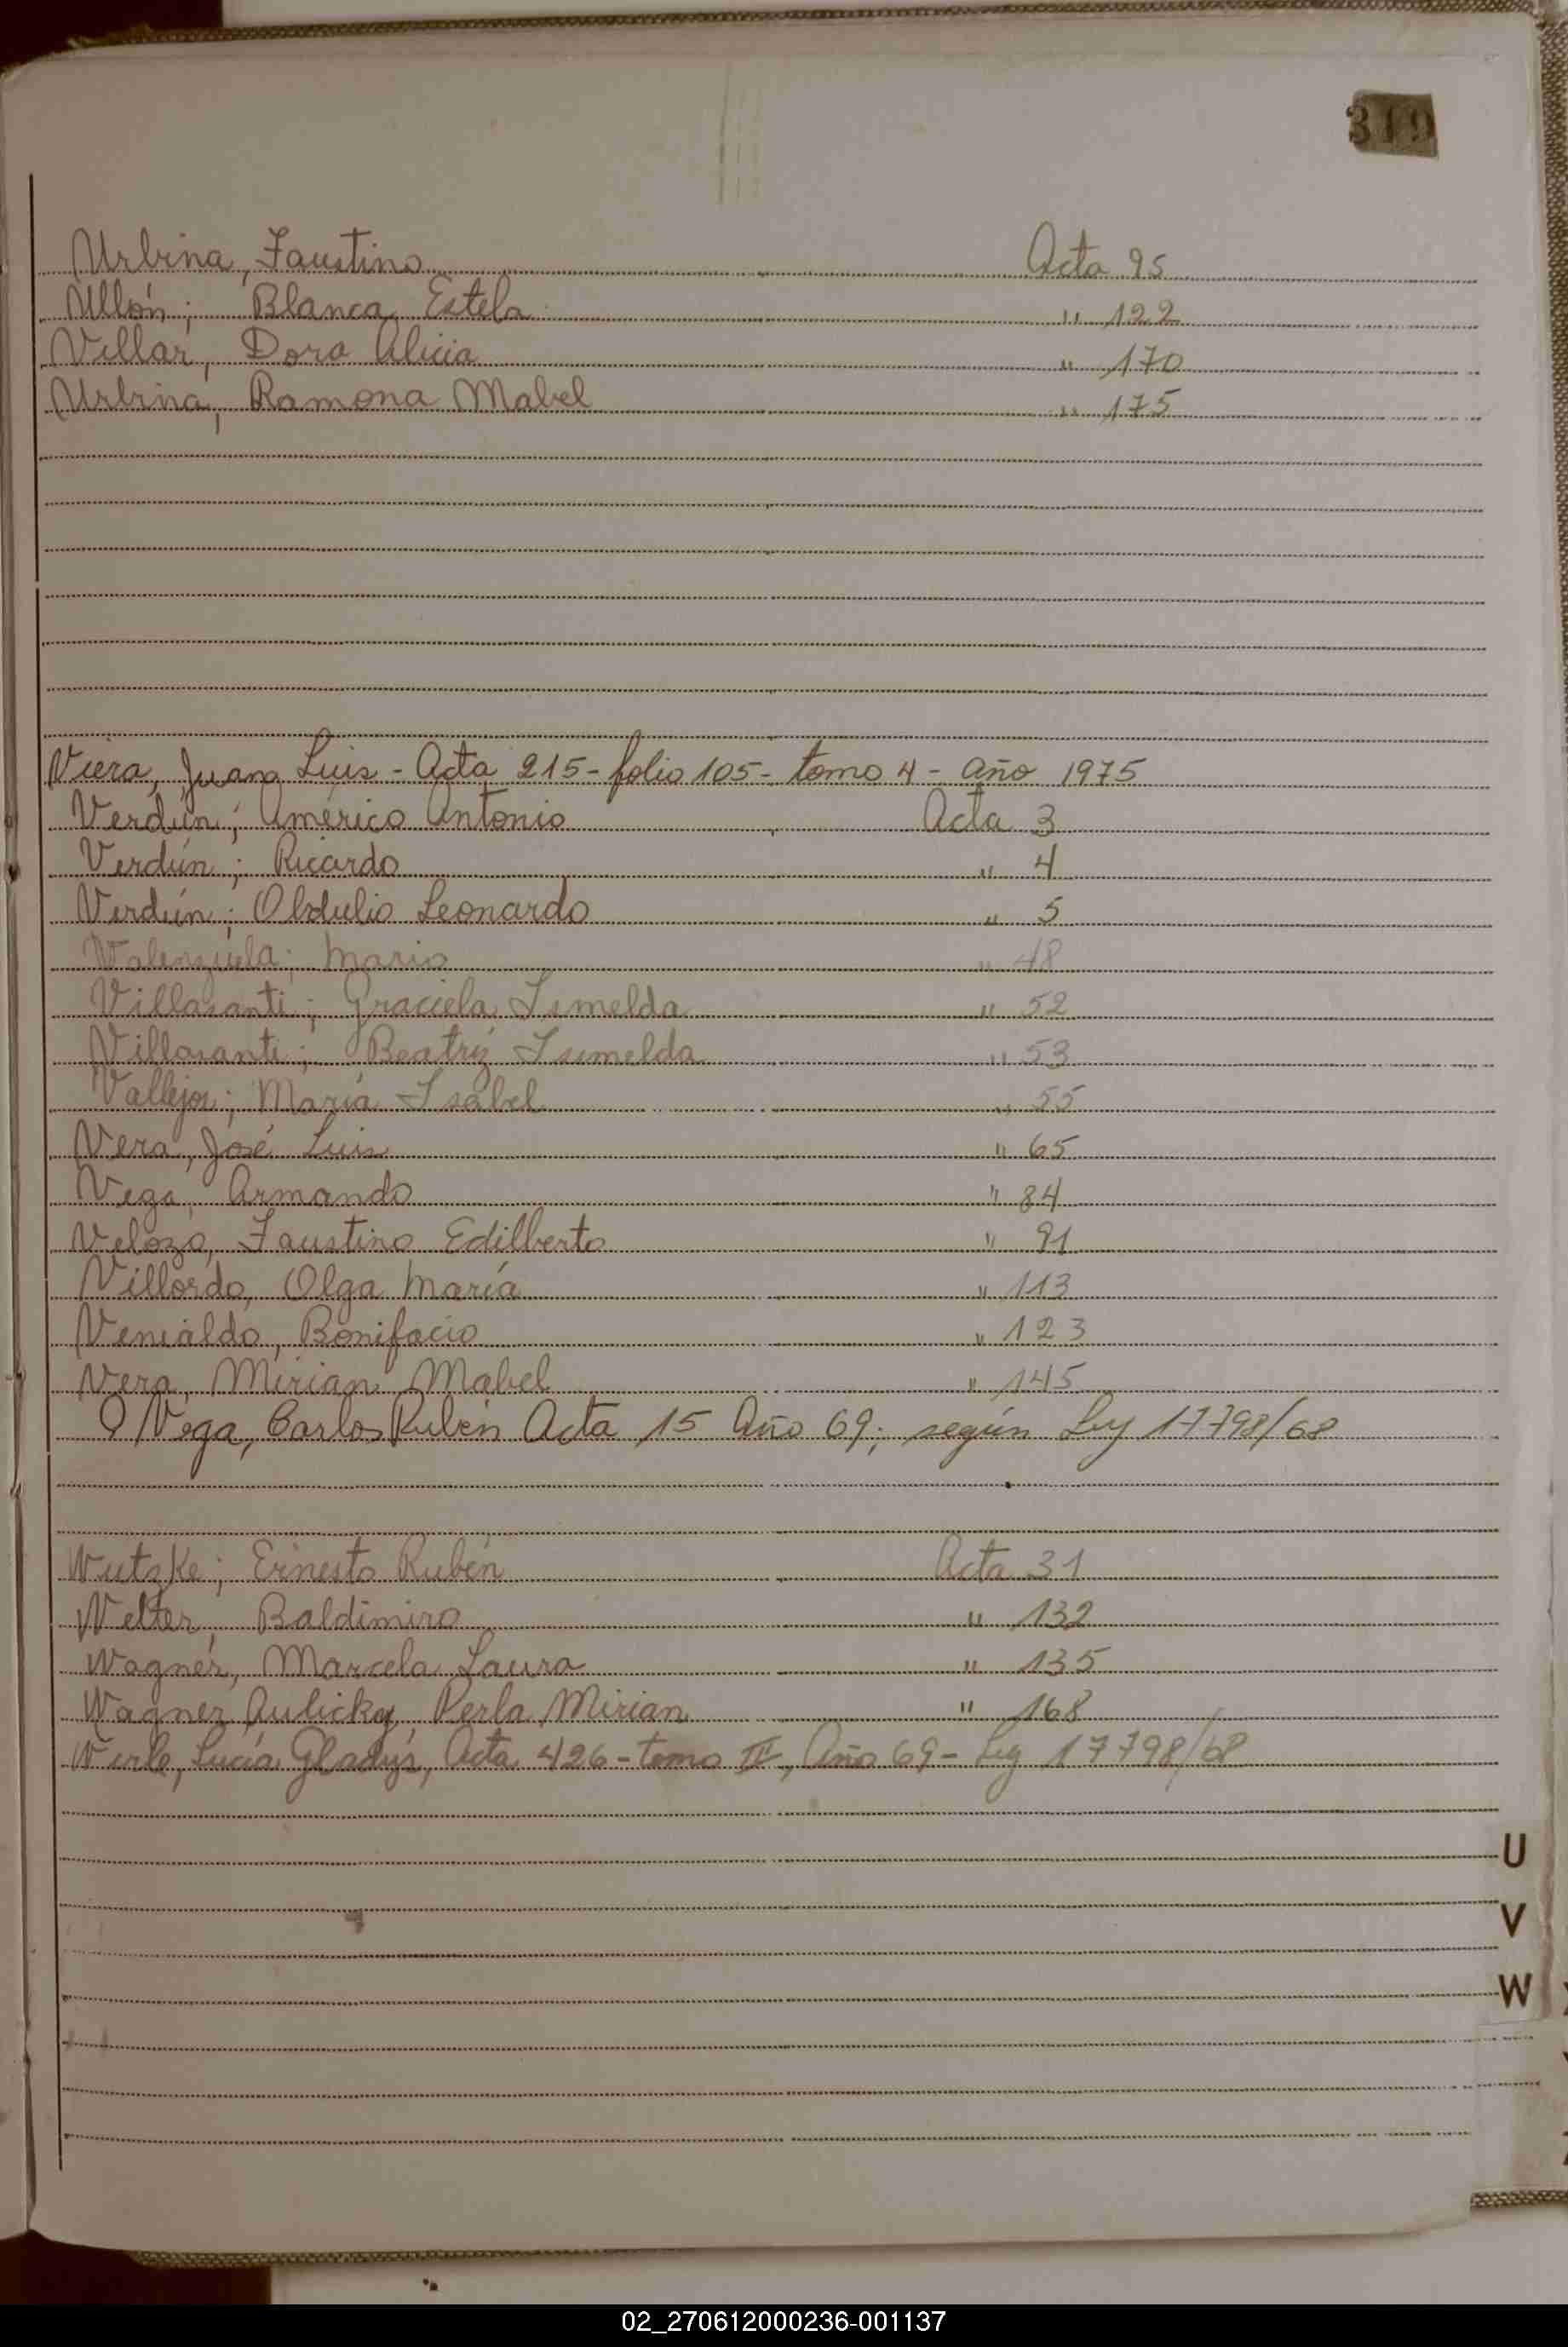 319
Urbina, Faustino Acta 95
Ullón; Blanca Estela " 122
Villar, Dora Alicia " 170
Urbina, Ramona Mabel " 175
Viera, Juana Luis - Acta 215 - folio 105 - tomo 4 - año 1975
Verdún; Américo Antonio Acta 3
Verdún; Ricardo " 4
Verdún; Obdulio Leonardo " 5
Valenzuela; Mario " 48
Villasanti; Graciela Ismelda " 52
Villasanti; Beatriz Isumelda " 53
Vallejos; María Isabel " 55
Vera, José Luis " 65
Vega, Armando " 84
Velozo, Faustino Edilberto " 91
Villordo, Olga María " 113
Venialdo, Bonifacio " 123
Vera, Mirian Mabel " 145
Vega, Carlos Rubén Acta 15 Año 69; según Ley 17798/68
Wutzke; Ernesto Rubén Acta 31
Welter, Baldimiro " 132
Wagner, Marcela Laura " 135
Wagner Aulicky, Perla Mirian " 168
Werle, Lucía Gladys, Acta 426 - tomo II, Año 69 - Ley 17798/68
U
V
W
02_270612000236-001137